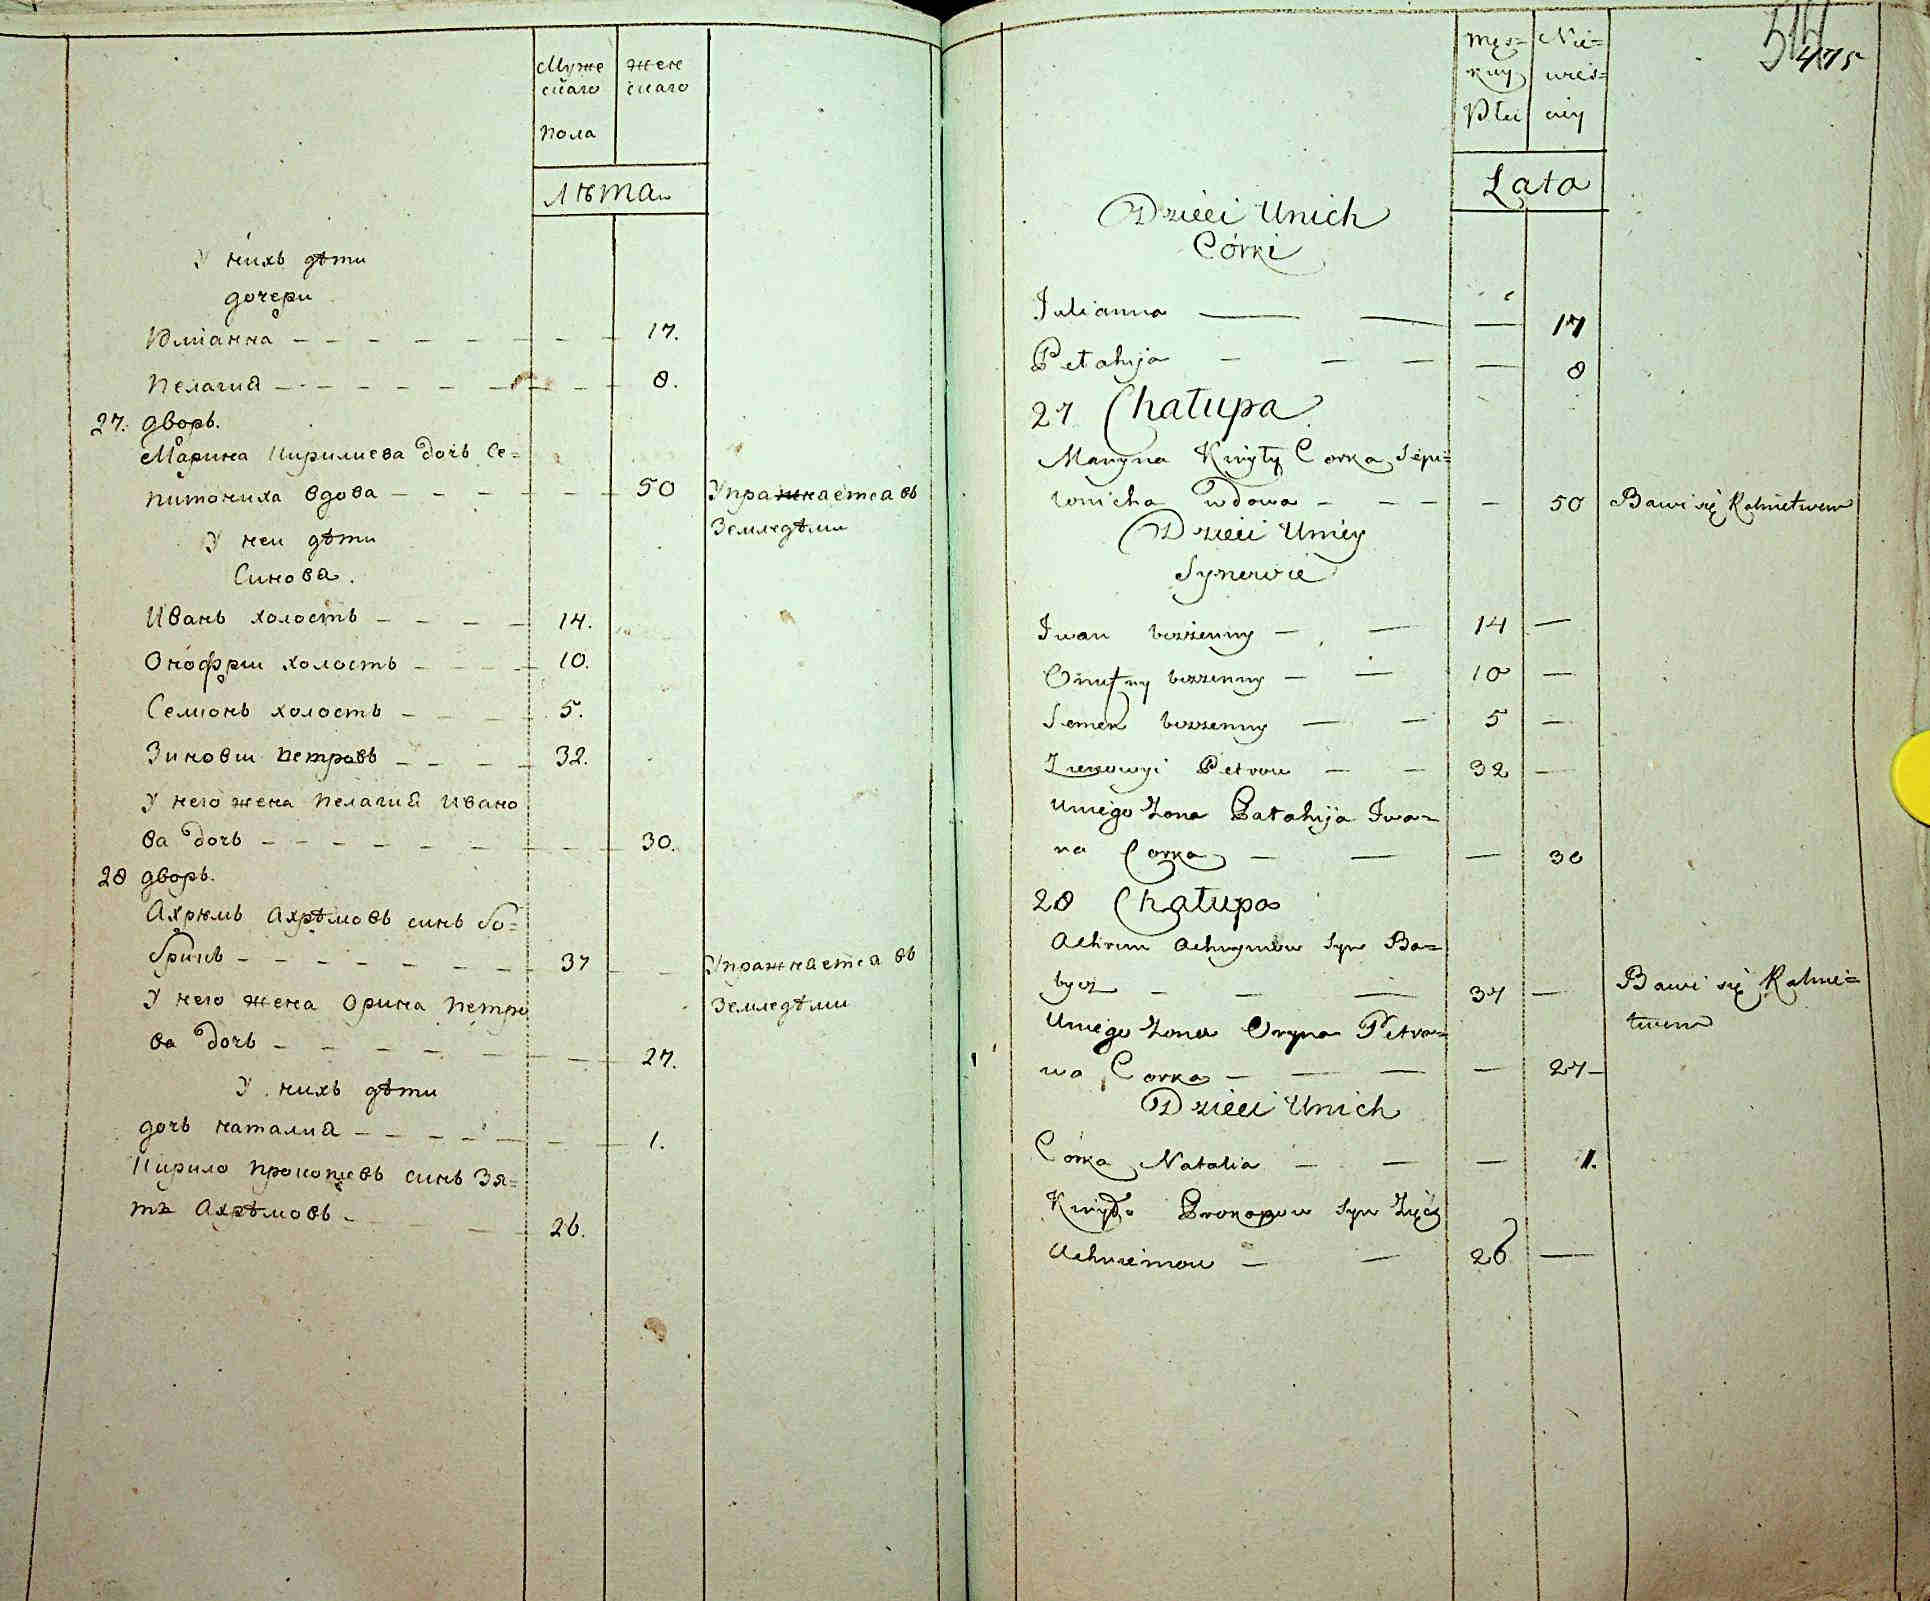 Муже
скаго
пола
жен
скаго
Лѣта
У нихъ дѣти
дочери
Юлианна — 17.
Пелагиа — 8.
27. дворъ.
Марина Кирилиева дочь Се=
питониха вдова — 50 Упражнается въ
Земледѣлии
У неи дѣти
Синова.
Иванъ холостъ — 14.
Онофрии холостъ — 10.
Семионъ холостъ — 5.
Зиновии Петровъ — 32.
У него жена Пелагиа Ивано
ва дочь — 30.
28 дворъ.
Ахрѣмъ Ахрѣмовъ синъ Бо=
37 Упражнается въ
У него жена Орина Петро Земледѣлии
ва дочь — 27.
У нихъ дѣти
дочь Наталиа — 1.
Кирило Прокопиевъ синъ Зя=
ть Ахрѣмовъ — 26.
475
Męz=
kiy
Płci
Nie=
wieś=
ciey
Lata
Dzieci Unich
Córki
Julianna — 17
Pełahija — 8
27 Chałupa
Maryna Kiryły Corka Sepi=
tonicha wdowa — 50 Bawi się Rolnictwem
Dzieci Uniey
Synowie
Iwan bezżenny — 14 —
Onufry bezżenny — 10 —
Semen bezżenny — 5 —
Zienowyi Petrow — 32 —
Uniego Zona Pałahija Iwa=
na Corka — 30
28 Chałupa
Achrim Achrymow Syn Ba=
bycz — 37 — Bawi się Rolnic=
twem
Uniego Zona Oryna Petro=
wa Corka — 27
Dzieci Unich
Córka Natalia — 1.
Kiryło Prokopow Syn Zięć
Achremow — 26 —